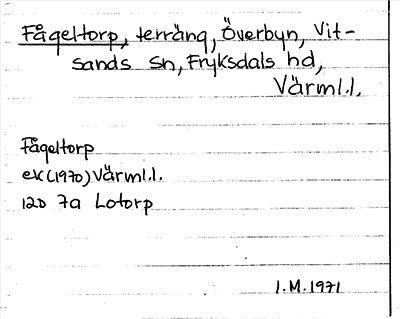 Fågeltorp, terräng, Överbyn, Vit-
sands sn, Fryksdals hd,
Värml.l.
Fågeltorp
ek (1970) Värml.l.
12D 7a Lotorp
I.M. 1971